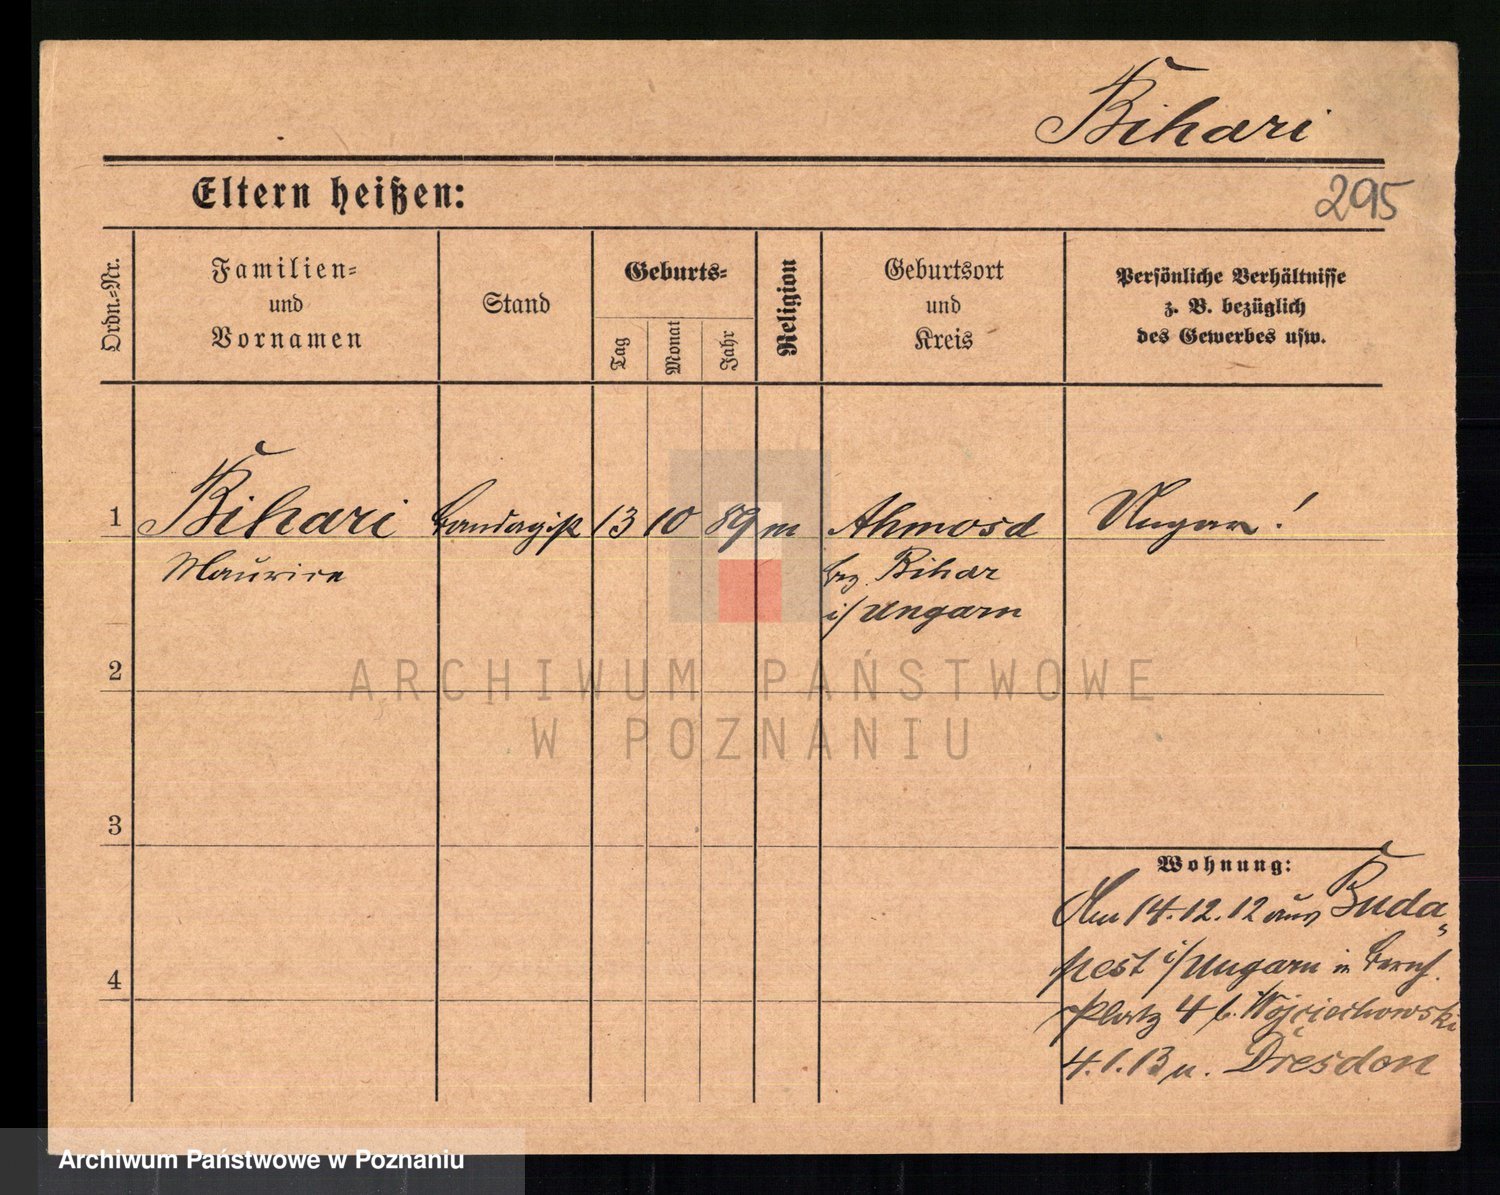 Bihari
Eltern heißen:
295
Ordn.=Nr.
Familien=
und
Vornamen
Stand
Geburts=
Tag
Monat
Jahr
Religion
Geburtsort
und
Kreis
Persönliche Verhältnisse
z. B. bezüglich
des Gewerbes usw.
1 Bihari Bandagist 13 10 89 m Ahmosd Ungar!
Maurice Bihar
i/ Ungarn
2
ARCHIWUM PAŃSTWOWE
W POZNANIU
3
Wohnung:
Am 14.12.12 aus Buda„
pest i/Ungarn in
4
Platz 4 b. Wojciechowski
4.1.13 n. Dresden
Archiwum Państwowe w Poznaniu